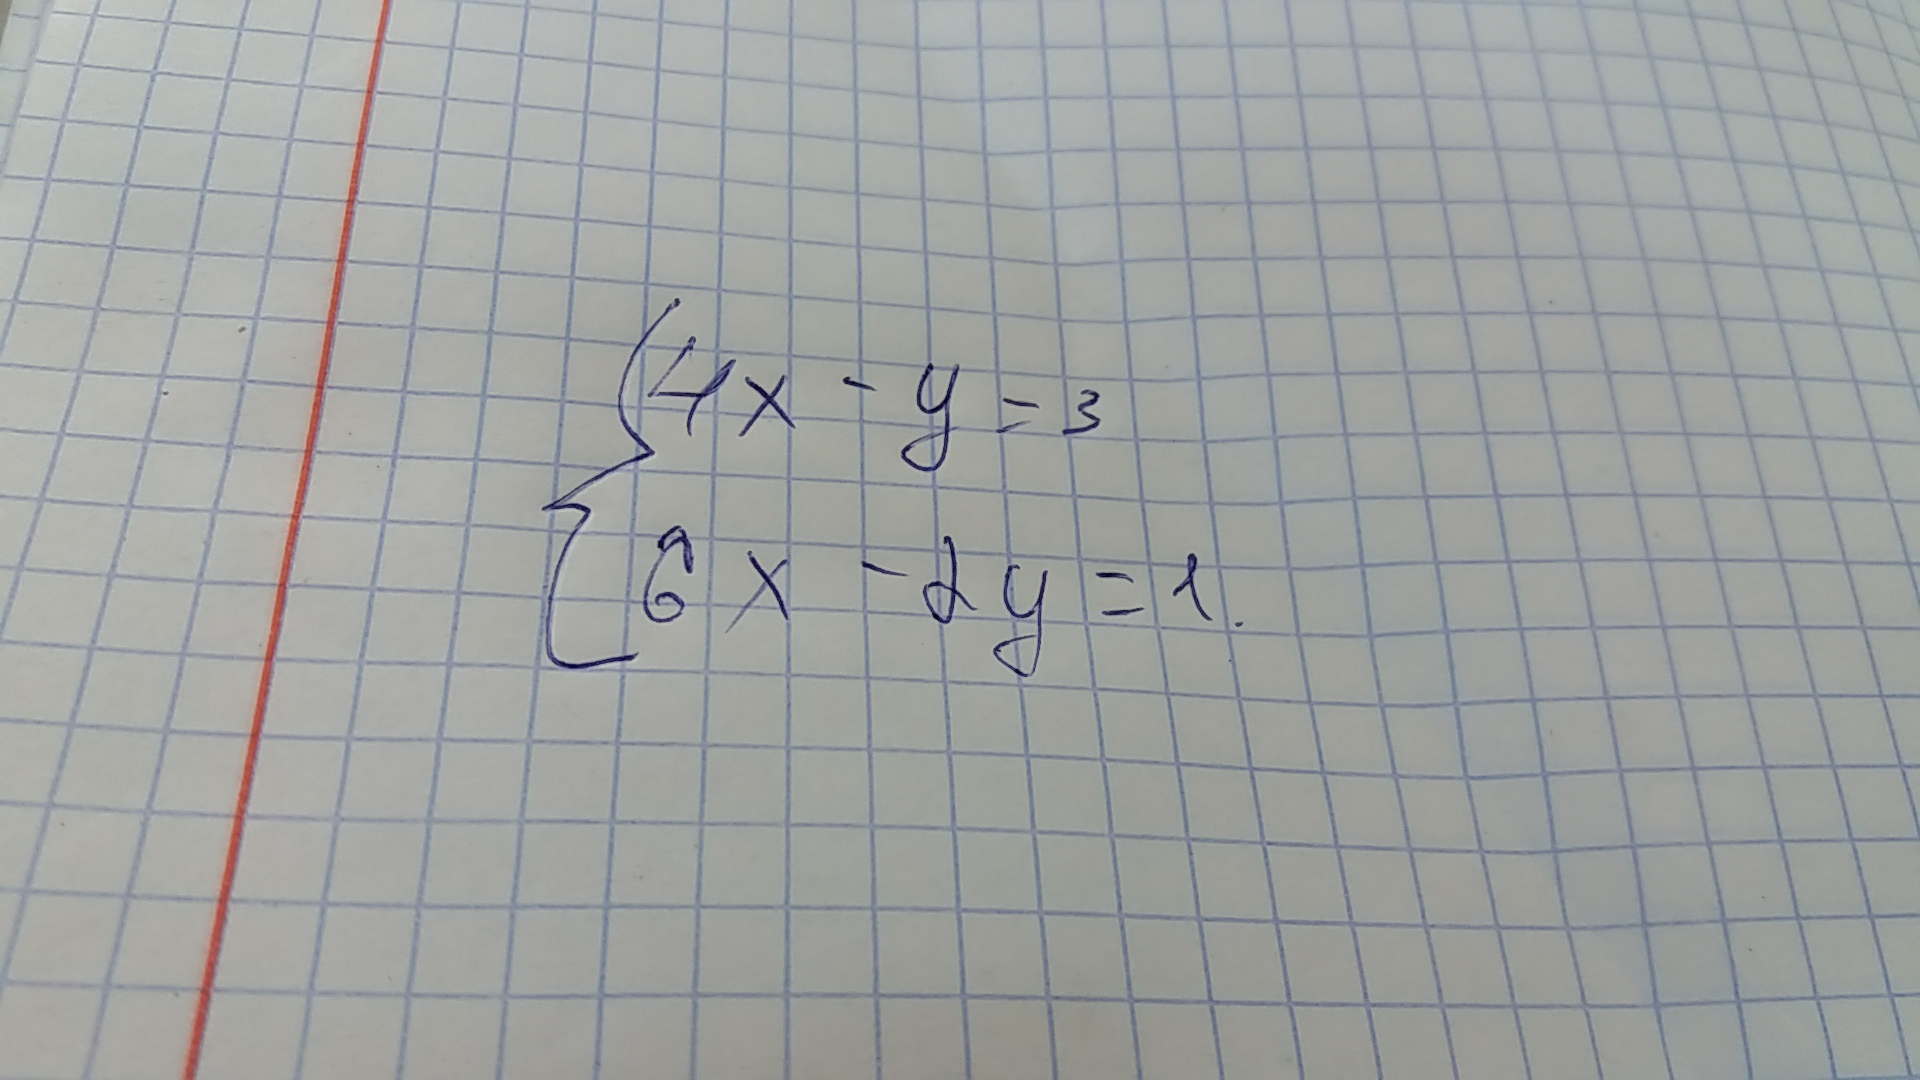 4x - y = 3
6x - 2y = 1.